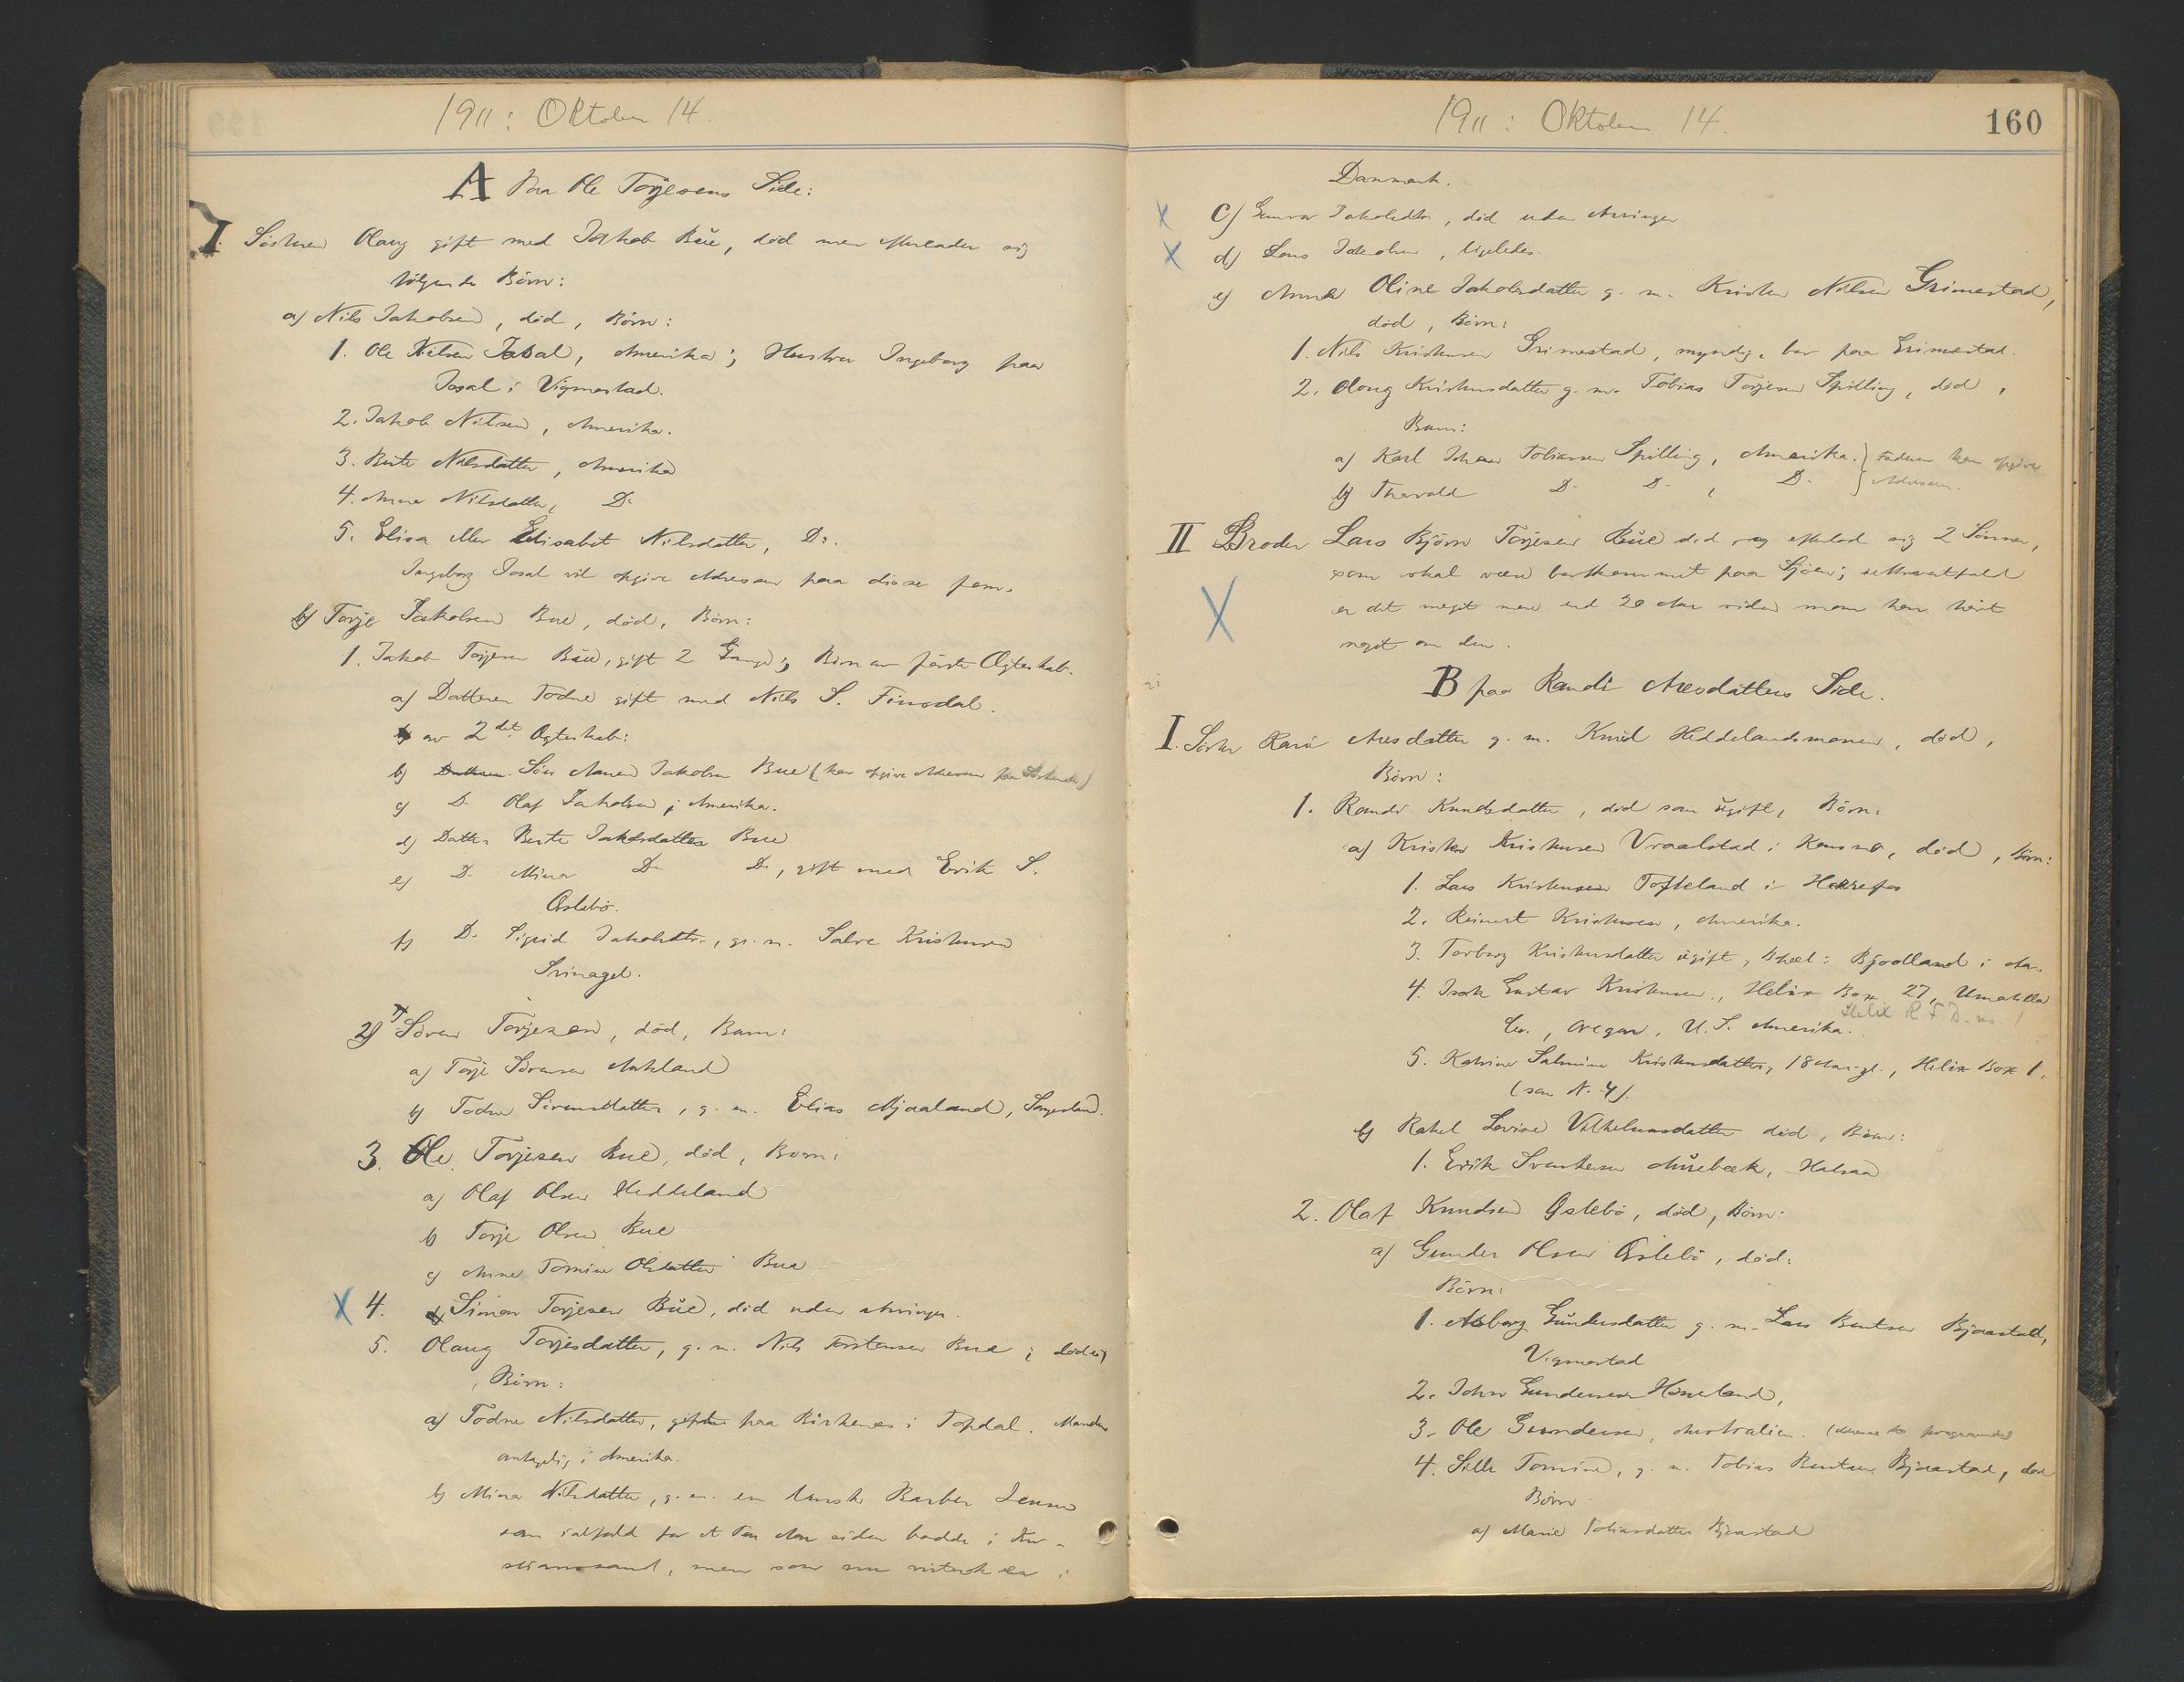 1911: Oktober 14.
A Paa Ole Torjesens Side:
I Søsteren Olaug gift med Jakob Bŭe, död men efterlader sig
følgende Börn:
a) Nils Jakobsen, död, Börn:
1. Ole Nilsen Josal, Amerika; Hustru Ingeborg paa
Josal i Vigmostad.
2. Jakob Nilsen, Amerika.
3. Berte Nilsdatter, Amerika
4. Anne Nilsdatter, Do
5. Elisa eller Elisabet Nilsdatter, Do.
Ingeborg Josal vil opgive Adressen paa disse fem.
b) Torje Jakobsen Bue, död, Börn:
1. Jakob Torjesen Bŭe, gift 2 Gange; Börn av förste Ægteskab.
a) Datteren Todne gift med Nils S. Finsdal.
av 2det Ægteskab:
b) Sön Jakobsen Bue (kan opgive Adressen paa Söskende)
c) Do Olaf Jakobsen i Amerika.
d) Datter Berte Jakobsdatter Bue
e) Do Mina Do Do, gift med Erik S.
Öslebö.
f) Do Sigrid Jakobsdtr., g. m. Salve Kristensen
2) Sören Torjesen, död, Barn:
a) Torje Sörensen
b) Todne Sörensdatter, g. m. Elias Mjaaland,
3. Ole Torjesen Bue, död, Barn:
a) Olaf Olsen Heddeland
b) Torje Olsen Bue
c) Anne Tomine Olsdatter Bue
4. Simon Torjesen Bŭe, död uden Arvinger.
5. Olaug Torjesdatter, g. m. Nils Torstensen Bue, döde,
Börn:
a) Todne Nilsdatter, gift paa Birkenes i Topdal. Manden
antagelig i Amerika.
b) Mina Nilsdatter, g. m. en dansk Barber Jensen
som ialfald for et Par Aar siden bodde i Kri-
stianssand, men som nu vistnok er i
1911: Oktober 14.
160
Danmark.
c) Gunvor Jakobsdtr, död uden Arvinger
d) Lars Jakobsen, ligeledes.
e) Anne Oline Jakobsdatter g. m. Kristen Nilsen Grimestad,
död, Börn:
1. Nils Kristensen Grimestad, myndig, bor paa Grimestad.
2. Olaug Kristensdatter g. m. Tobias Torjesen Spilling, död,
Barn:
a) Karl Johan Tobiassen Spilling, Amerika. } Faderen kan opgive
b) Thorvald Do Do, Do } Adressen.
II Broder Lars Björn Torjesen Bŭe död og efterlod sig 2 Sönner,
som skal være bortkommet paa Sjöen; iethvertfald
er det meget mere end 20 Aar siden man har hört
noget om dem.
B paa Randi Aresdatters Side.
I. Söster Kari Aresdatter g. m. Knŭd Heddelandsmonen, död,
Börn:
1. Randi Knudsdatter, död som ŭgift, Börn:
a) Kristen Kristensen Vraalstad i död, Börn:
1. Lars Kristensen Tofteland i
2. Reinert Kristensen, Amerika.
3. Torborg Kristensdatter ŭgift, Bjelland i
4. Isak Gustav Kristensen, Helix Box 27, Umatilla
Helix R F D. no. 1
Co., Oregon, U. S. Amerika.
5. Katrine Salmine Kristensdatter, 18 Aar gl., Helix Box 1.
(som N. 4).
b) Rakel Lovise Vilhelmsdatter död, Börn:
1. Erik Svenksen Mŭsebæk, Halsaa
2. Olaf Knudsen Öslebö, död, Börn:
a) Gunder Olsen Öslebö, död:
Börn:
1. Aasborg Gŭndersdatter g. m. Lars Bentsen Bjaastad,
Vigmostad
2. John Gundersen
3. Ole Gundersen, Australien.
4. Sille Tomine, g. m. Tobias Bentsen Bjaastad, död
Börn
a) Marie Tobiasdatter Bjaastad